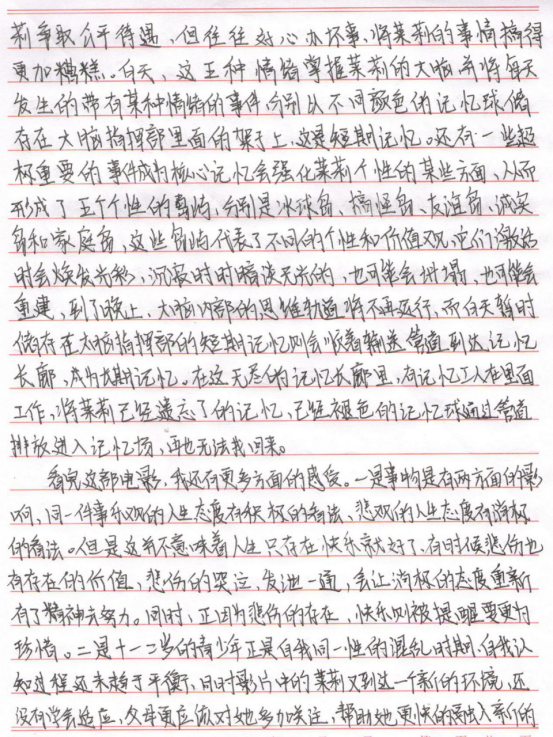 莉争取公平待遇，但往往好心办坏事，将莱莉的事情搞得
更加糟糕。白天，这五种情绪掌握莱莉的大脑并将每天
发生的带有某种情绪的事件分别以不同颜色的记忆球储
存在大脑指挥部里面的架子上，这是短期记忆。还有一些超
极重要的事件成为核心记忆会强化莱莉个性的某些方面，从而
形成了五个个性的岛屿，分别是冰球岛、搞怪岛、友谊岛、诚实
岛和家庭岛，这些岛屿代表了不同的个性和价值观，它们激活
时会焕发光彩，沉寂时时暗淡无光的，也可能会坍塌，也可能会
重建，到了晚上，大脑内部的思维轨道将不再运行，而白天暂时
储存在大脑指挥部的短期记忆则会顺着输送管道到达记忆
长廊，成为长期记忆。在这无尽的记忆长廊里，有记忆工人在里面
工作，将莱莉已经遗忘了的记忆，已经褪色的记忆球通过管道
排放进入记忆场，再也无法找回来。
看完这部电影，我还有更多方面的感受。一是事物是有两方面的影
响，同一件事乐观的人生态度有积极的看法，悲观的人生态度有消极
的看法。但是这并不意味着人生只存在快乐就好了，有时候悲伤也
有存在的价值，悲伤的哭泣，发泄一通，会让消极的态度重新
有了精神去努力。同时，正因为悲伤的存在，快乐则被提醒要更为
珍惜。二是十一二岁的青少年正是自我同一性的混乱时期，自我认
知过程还未趋于平衡，同时影片中的莱莉又到达一个新的环境，还
没有学会适应，父母更应该对她多加关注，帮助她更快的融入新的